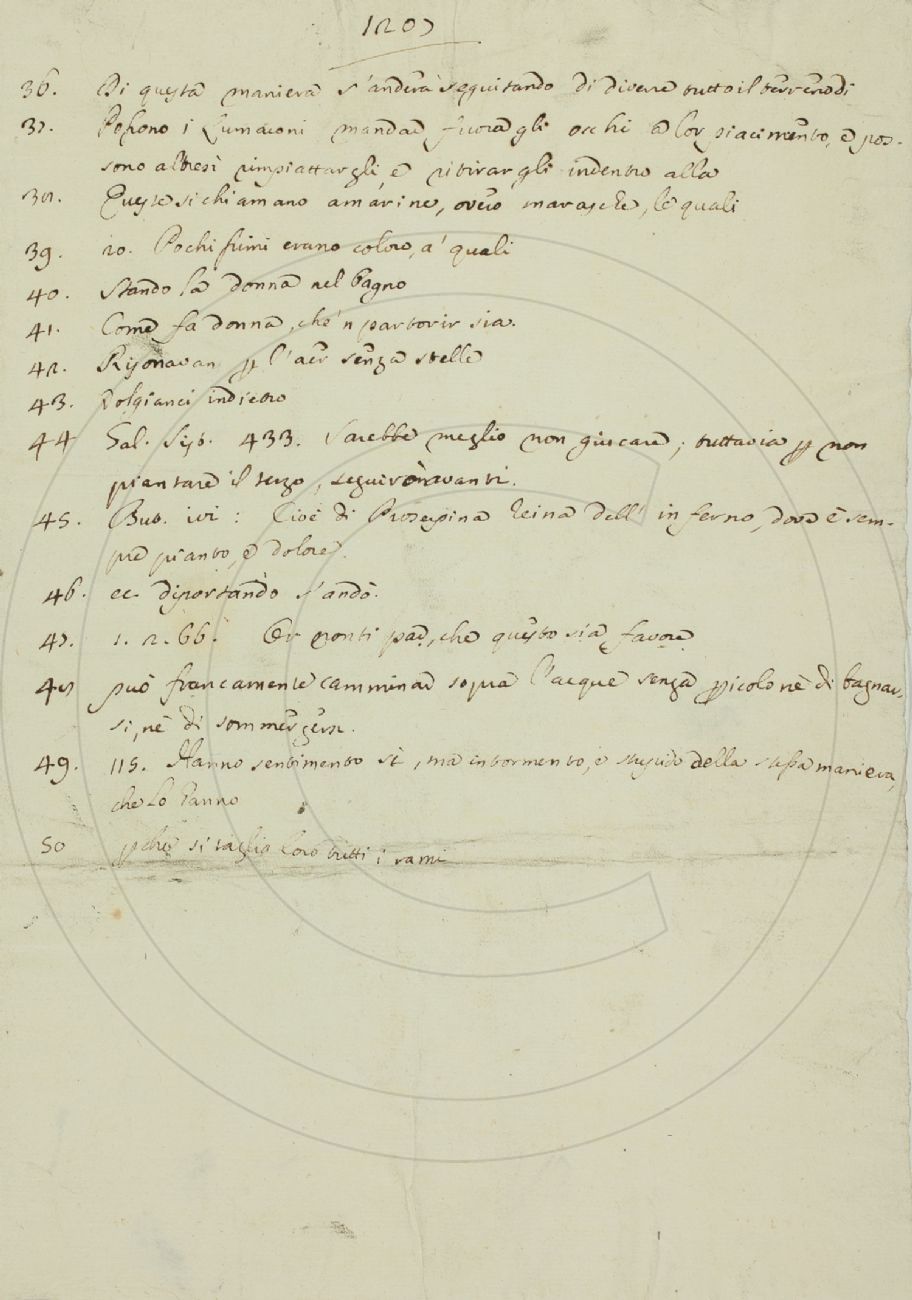 1207
36. Di questa maniera s'anderà seguitando di divere tutto il terreno di
37. Possono i Lumaconi mandar fuora gli occhi a lor piacimento, e pos-
sono altresì rimpiattargli, e ritirargli indentro alla
38. Queste si chiamano amarine, ovvero marasche, le quali
39. 20. Pochissimi erano coloro, a' quali
40. Stando la donna nel bagno
41. Come fa donna, che 'n partorir sia.
42. Risonavan p l'aer senza stelle
43. Volgianci indietro
44 Sal. Sip. 433. Sarebbe meglio non giucare; tuttavia p non
piantare il terzo, seguirò avanti.
45. But. ivi: Cioè di Proserpina reina dell'inferno, dove è sem-
pre pianto, e dolore.
46. ec. diportando s'andò.
47. 1. 2. 66. Or ponti par, che questo sia favore
48 può francamente camminar sopra l'acque senza picolo nè di bagnar-
si, nè di sommergersi.
49. 115. Hanno sentimento sì, ma intormentito, e stupido della stessa maniera,
che lo hanno
50 pchè si taglia loro tutti i rami